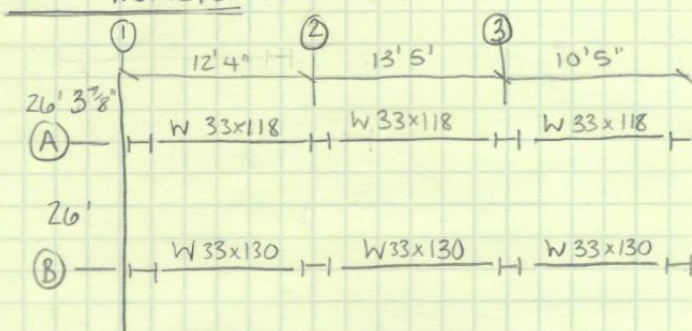 1 2 3
12'4" 13'5' 10'5"
26' 3 7/8"
A W 33x118 W 33x118 W 33x118
26'
B W 33x130 W 33x130 W 33x130